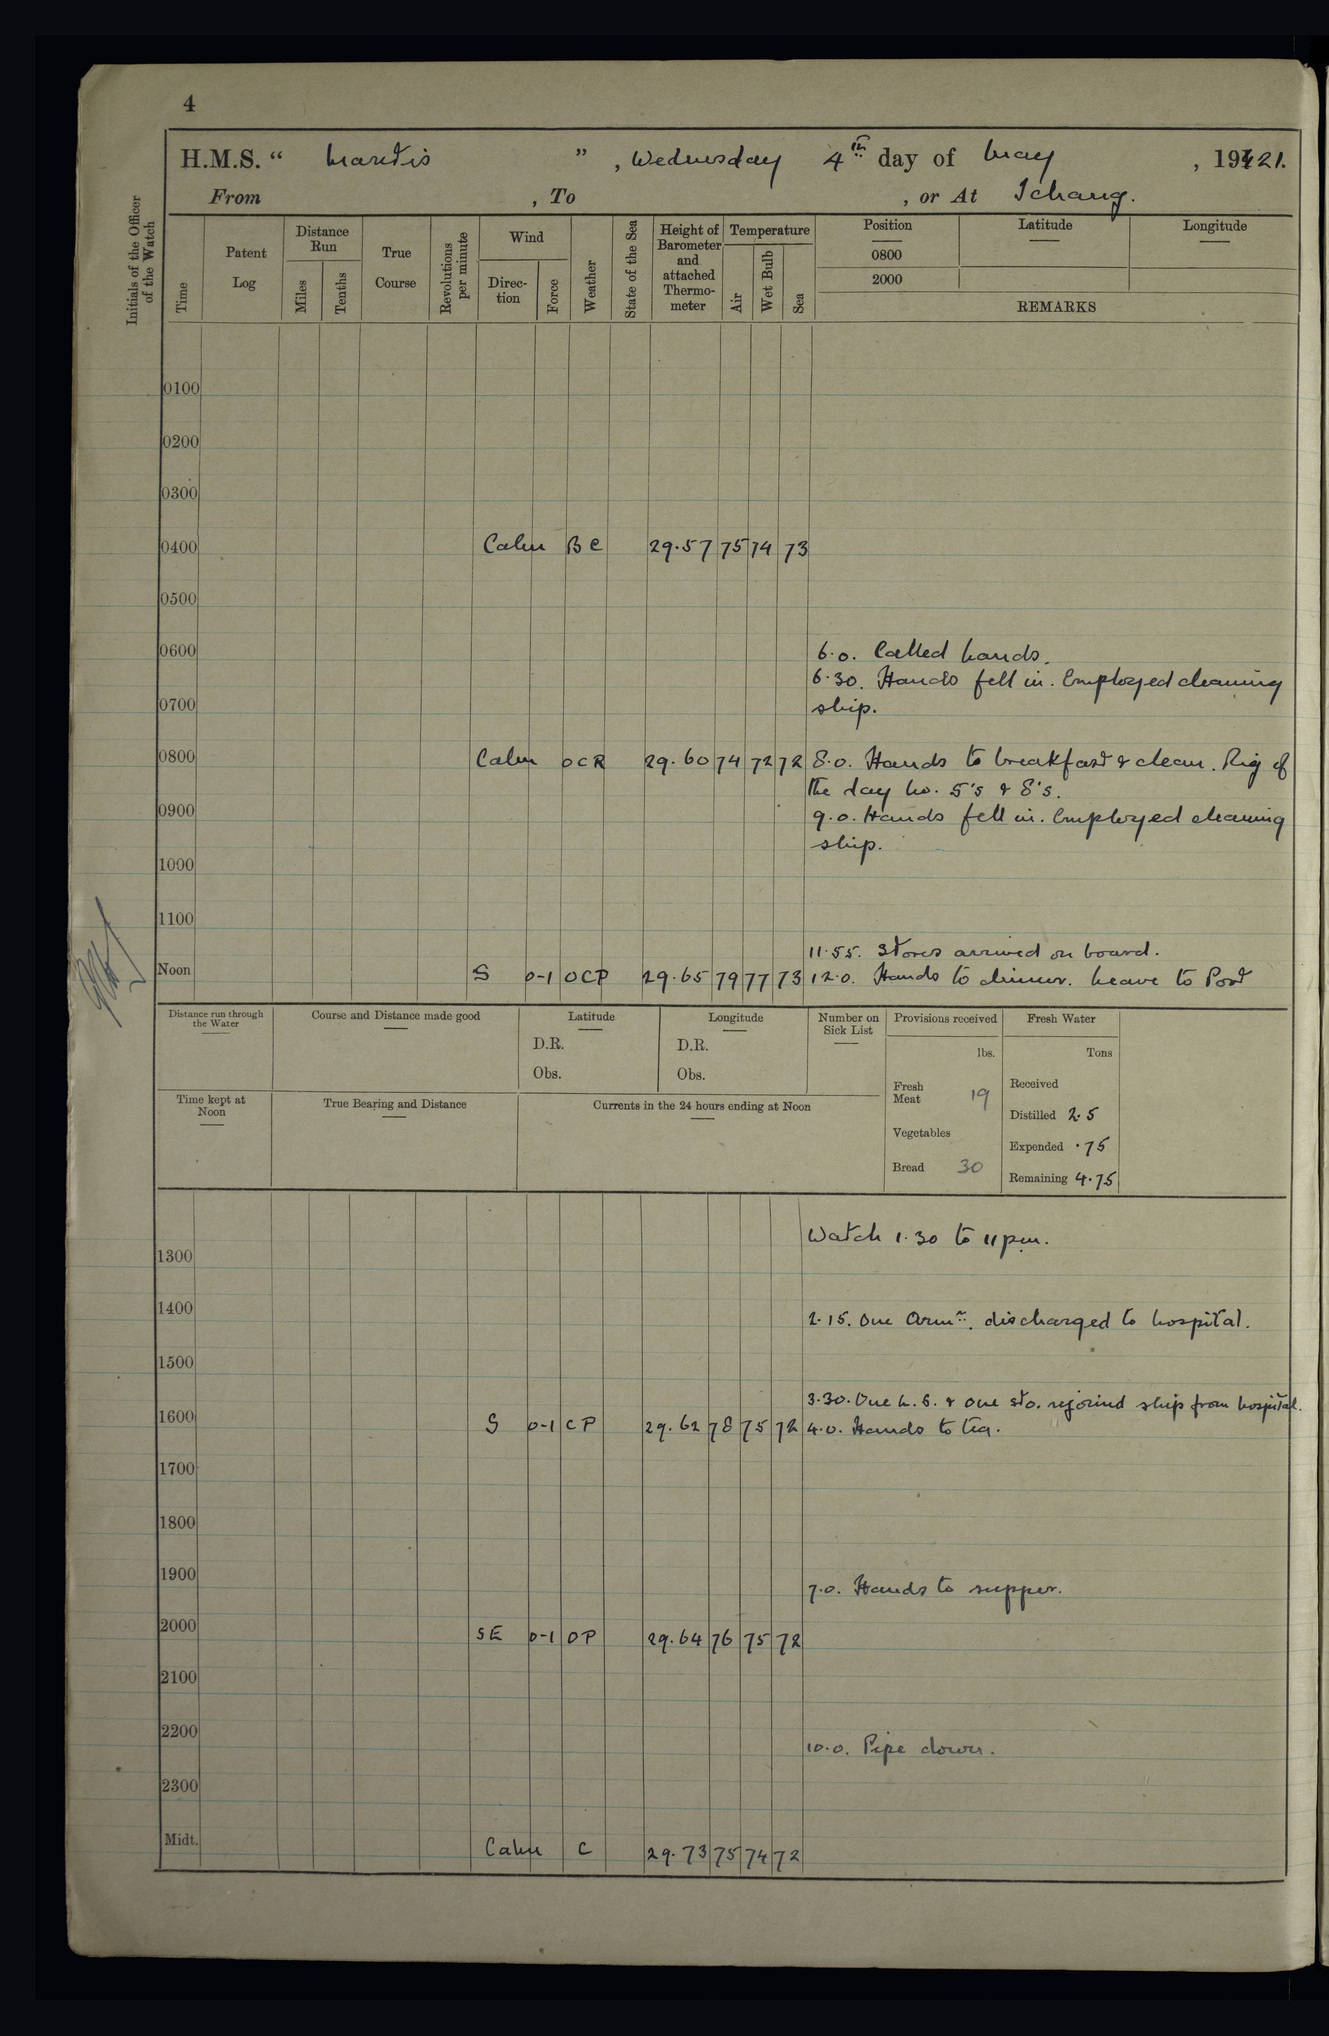 4
H.M.S. “ Mantis ” , Wednesday 4th day of May , 1921.
From , To , or At Ichang.
Initials of the Officer of the Watch
Time
Patent Log
Distance Run
Miles
Tenths
True Course
Revolutions per minute
Wind
Direc-tion
Force
Weather
State of the Sea
Height of Barometer and attached Thermo-meter
Temperature
Air
Wet Bulb
Sea
Position
Latitude
Longitude
0800
2000
REMARKS
0100
0200
0300
0400 Calm B C 29.57 75 74 73
0500
0600 6.0. Called hands.
6.30. Hands fell in. Employed cleaning
0700 ship.
0800 Calm O C R 29.60 74 72 72 8.0. Hands to breakfast & clean. Rig of
the day No. 5's & 8's.
0900 9.0. Hands fell in. Employed cleaning
ship.
1000
1100
11.55. Stores arrived on board.
Noon S 0-1 O C P 29.65 79 77 73 12.0. Hands to dinner. Leave to Port
Distance run through the Water
Course and Distance made good
Latitude
D.R.
Obs.
Longitude
D.R.
Obs.
Number on Sick List
Provisions received
lbs.
Fresh Meat 19
Vegetables
Bread 30
Fresh Water
Tons
Received
Distilled 2.5
Expended .75
Remaining 4.75
Time kept at Noon
True Bearing and Distance
Currents in the 24 hours ending at Noon
Watch 1.30 to 11 pm.
1300
1400 2.15. One Armr. discharged to hospital.
1500
3.30. One L.S. & one Sto. rejoined ship from hospital.
1600 S 0-1 C P 29.62 78 75 72 4.0. Hands to tea.
1700
1800
1900 7.0. Hands to supper.
2000 SE 0-1 O P 29.64 76 75 72
2100
2200 10.0. Pipe down.
2300
Midt. Calm C 29.73 75 74 72